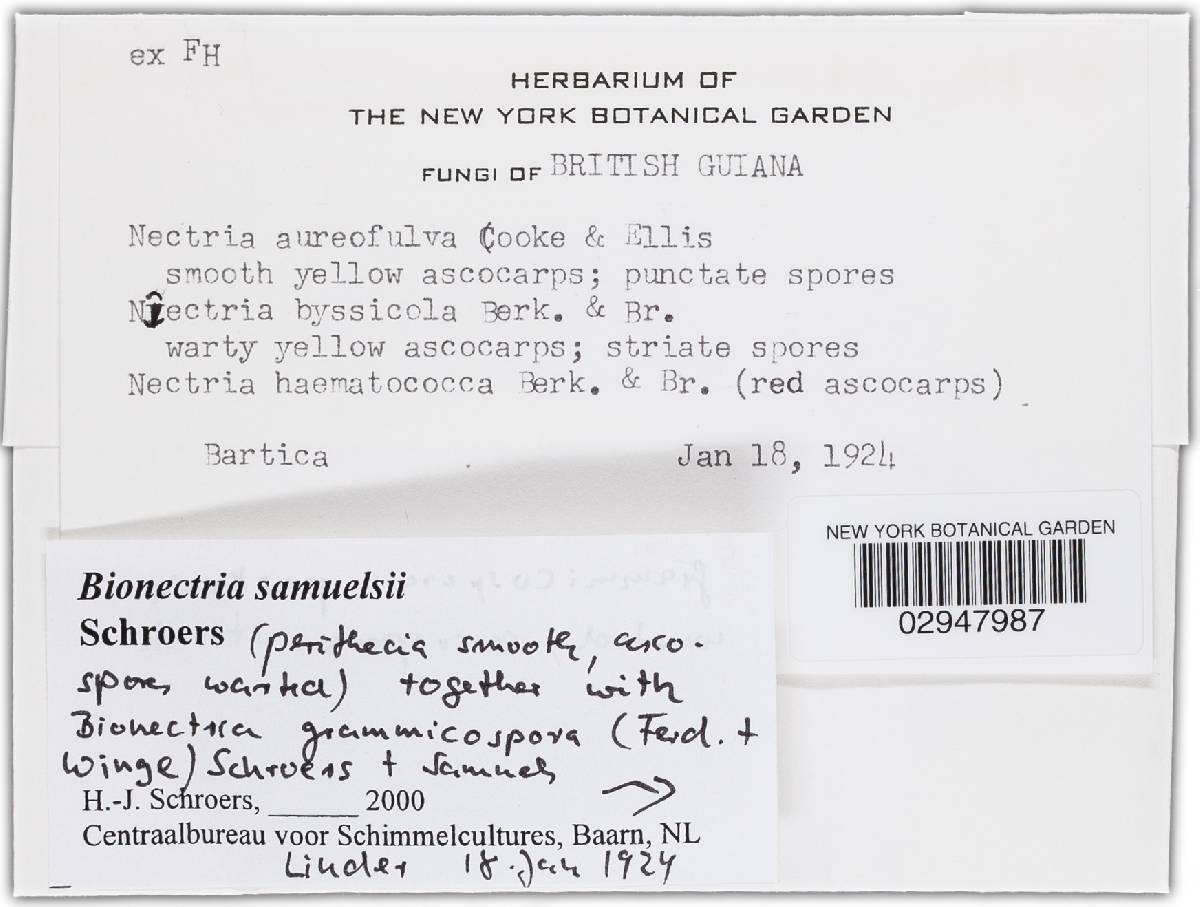 ex FH
HERBARIUM OF
THE NEW YORK BOTANICAL GARDEN
FUNGI OF BRITISH GUIANA
Nectria aureofulva Cooke & Ellis
smooth yellow ascocarps; punctate spores
Nectria byssicola Berk. & Br.
warty yellow ascocarps; striate spores
Nectria haematococca Berk. & Br. (red ascocarps)
Bartica Jan 18, 1924
NEW YORK BOTANICAL GARDEN
02947987
Bionectria samuelsii
Schroers (perithecia smooth, asco-
spores warted) together with
Bionectria grammicospora (Ferd. +
Winge) Schroers + Samuels
H.-J. Schroers, ______ 2000
Centraalbureau voor Schimmelcultures, Baarn, NL
Linder 18. Jan 1924